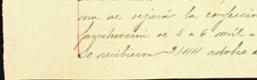 na se dejará la confección
construcción de 5 a 6 mil a
Se recibieron 2144 adobes a